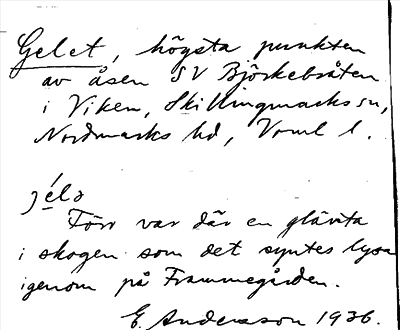 Gelet, högsta punkten
av åsen SV Björkebråten
i Viken, Skillingmarks sn,
Nordmarks hd, Vrml l.
jélə
Förr var där en glänta
i skogen som det syntes lysa
igenom på Frammegården.
E. Andersson 1936.